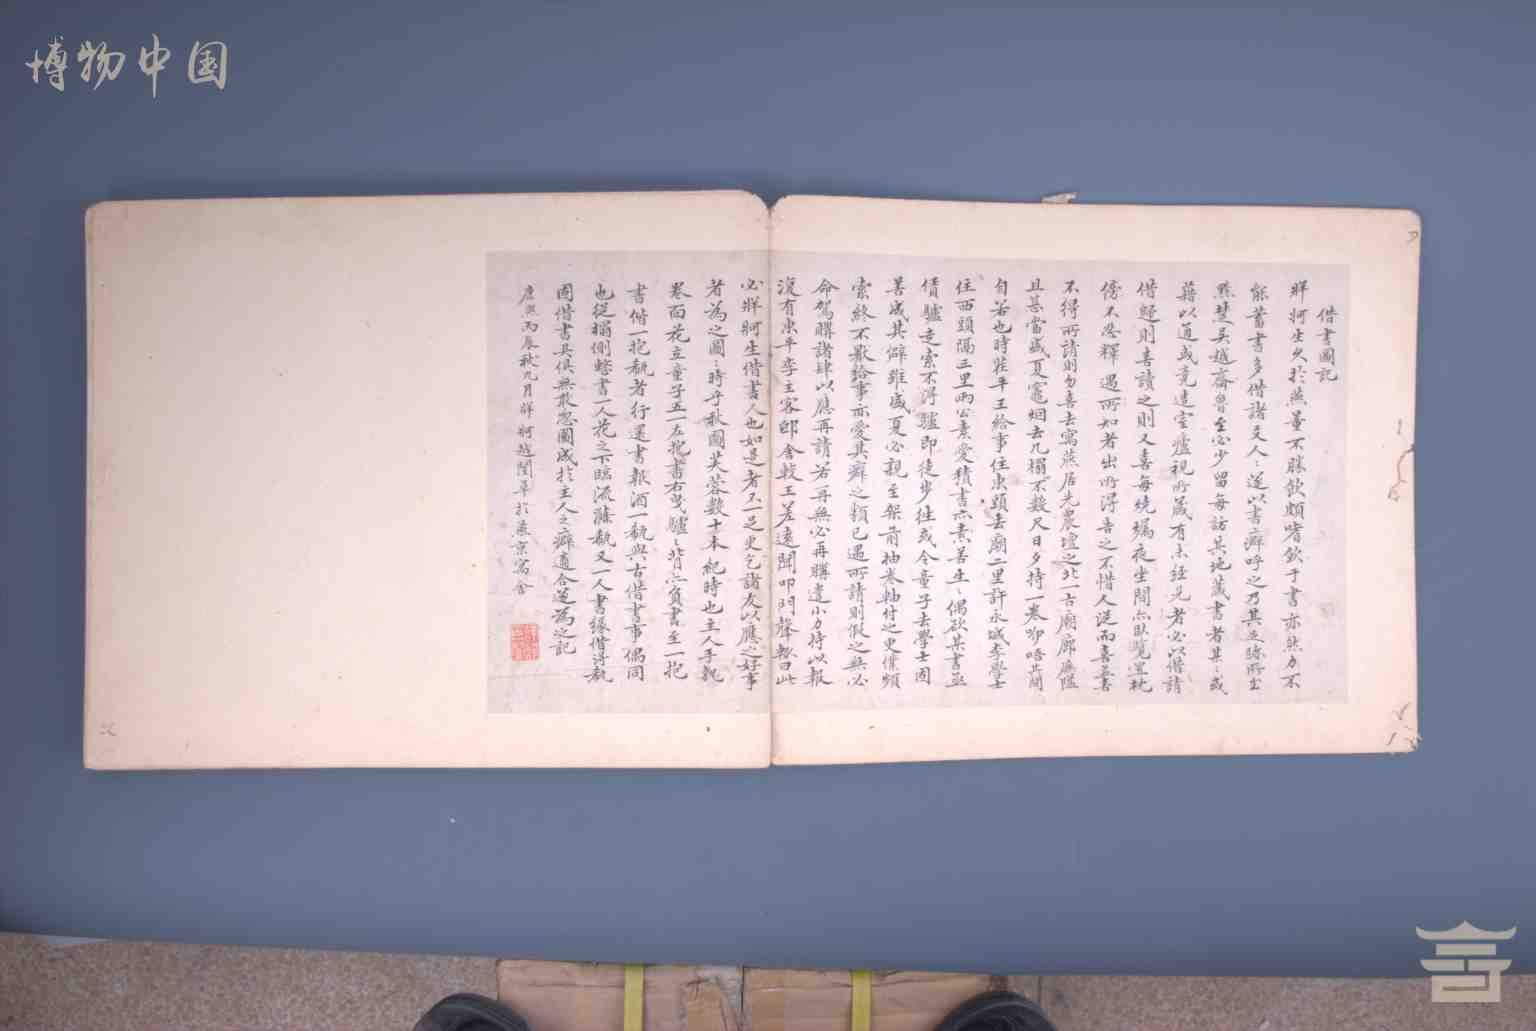 博物中国
借書圖記
牂牁生久於燕量不勝飲頗嗜飲于書亦然力不
能蓄書多借諸友人人遂以書癖呼之乃其足跡所至
燕楚吳越齊魯至必少留每訪其地藏書者某某或
藉以通或竟造室爐視所藏有未經見者必以借請
借歸則喜讀之則又喜每燒燭夜坐間亦臥覽置枕
傍不忍釋遇所知者出所得告之不惜人逆而喜蓋書
不得所請則勿喜去寓燕居先農壇之北一古廟廊廡隘
且甚當盛夏竈烟去几榻不數尺日夕持一卷咿唔其間
自若也時茌平王給事住東頭去廟二里許永城李學士
住西頭隔三里兩公素愛積書亦素善生生偶欲某書亟
借驢走索不得驢即徒步往或令童子去學士固
善成其僻雖盛夏必親至架前抽卷軸付之更僕頻
索終不厭給事亦愛其癖之類己遇所請則假之無必
命駕購諸肆以應再請若再無必再購遣小力持以報
復有東平李主客邸舍較王差遠聞叩門聲輒曰此
必牂牁生借書人也如是者不一足更乞諸友以應之好事
者為之圖圖時乎秋圃芙蓉數十本紀時也主人手執
卷面花立童子五一左抱書右曳驢驢背亦負書至一抱
書借一抱瓻者行還書報酒一瓻與古借書事偶同
也從榻側整書一人花之下臨流滌瓻又一人書緣借得瓻
因借書具俱無敢忽圖成於主人之癖適合遂為之記
康熙丙辰秋九月牂牁越闓草於燕京寓舍